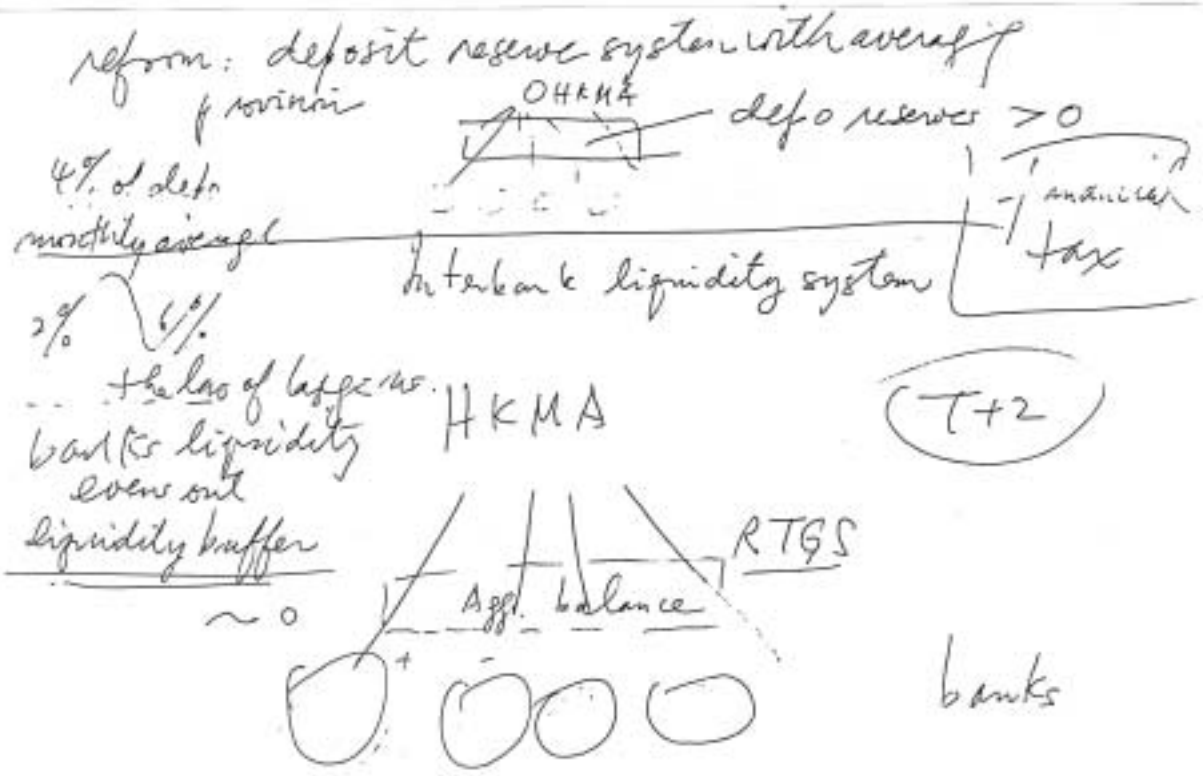 reform: deposit reserve system with averag
provision
HKMA
depo reserves > 0
4% of depo
monthly average
tax
Interbank liquidity system
2% 6%
the law of large no.
banks liquidity
evens out
liquidity buffer
~ 0
HKMA
T+2
RTGS
Agg. balance
+ -
banks